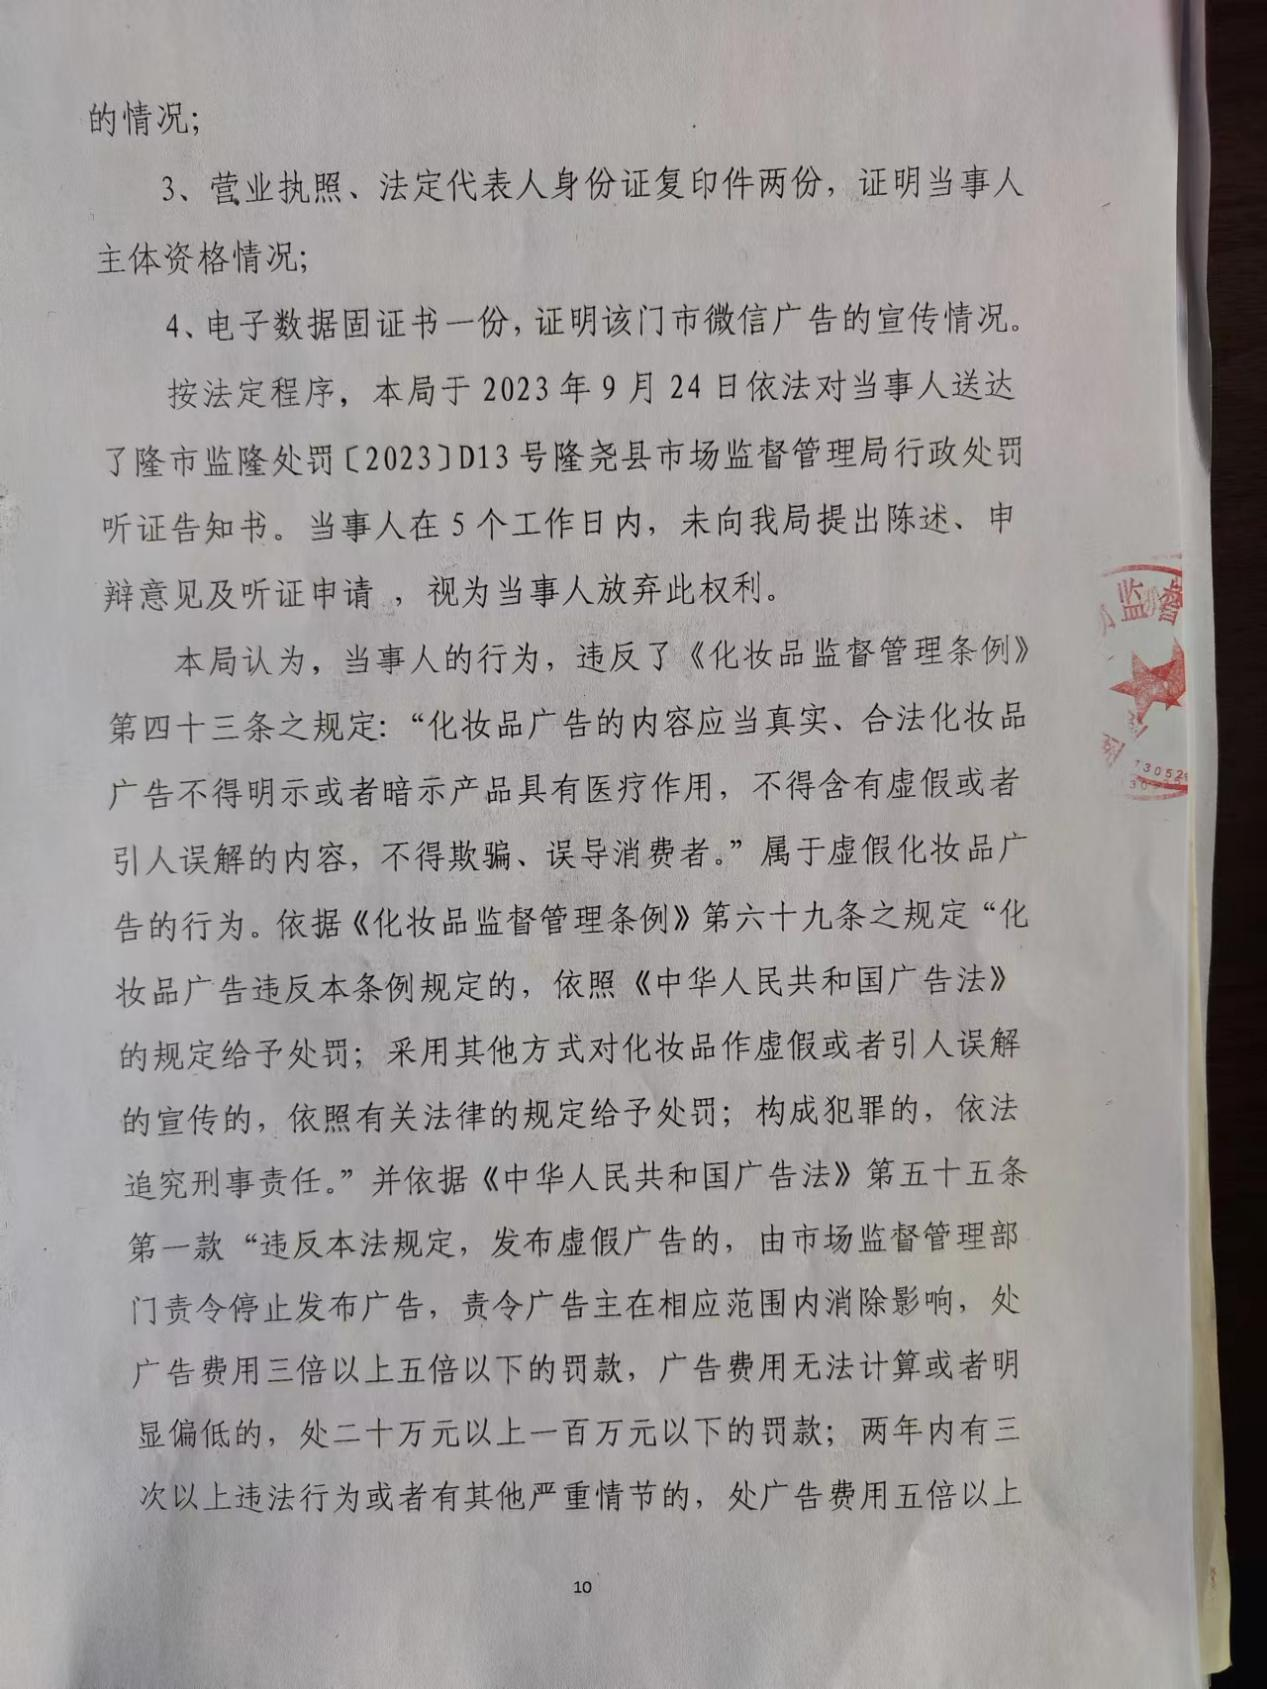 的情况；
3、营业执照、法定代表人身份证复印件两份，证明当事人
主体资格情况；
4、电子数据固证书一份，证明该门市微信广告的宣传情况。
按法定程序，本局于 2023 年 9 月 24 日依法对当事人送达
了隆市监隆处罚〔2023〕D13 号隆尧县市场监督管理局行政处罚
听证告知书。当事人在 5 个工作日内，未向我局提出陈述、申
辩意见及听证申请 ，视为当事人放弃此权利。
本局认为，当事人的行为，违反了《化妆品监督管理条例》
第四十三条之规定：“化妆品广告的内容应当真实、合法化妆品
广告不得明示或者暗示产品具有医疗作用，不得含有虚假或者
引人误解的内容，不得欺骗、误导消费者。”属于虚假化妆品广
告的行为。依据《化妆品监督管理条例》第六十九条之规定“化
妆品广告违反本条例规定的，依照《中华人民共和国广告法》
的规定给予处罚；采用其他方式对化妆品作虚假或者引人误解
的宣传的，依照有关法律的规定给予处罚；构成犯罪的，依法
追究刑事责任。”并依据《中华人民共和国广告法》第五十五条
第一款“违反本法规定，发布虚假广告的，由市场监督管理部
门责令停止发布广告，责令广告主在相应范围内消除影响，处
广告费用三倍以上五倍以下的罚款，广告费用无法计算或者明
显偏低的，处二十万元以上一百万元以下的罚款；两年内有三
次以上违法行为或者有其他严重情节的，处广告费用五倍以上
10
监督